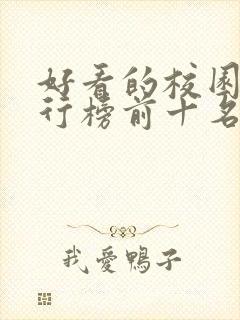 好看的校园
行榜前十名
我愛鴨子